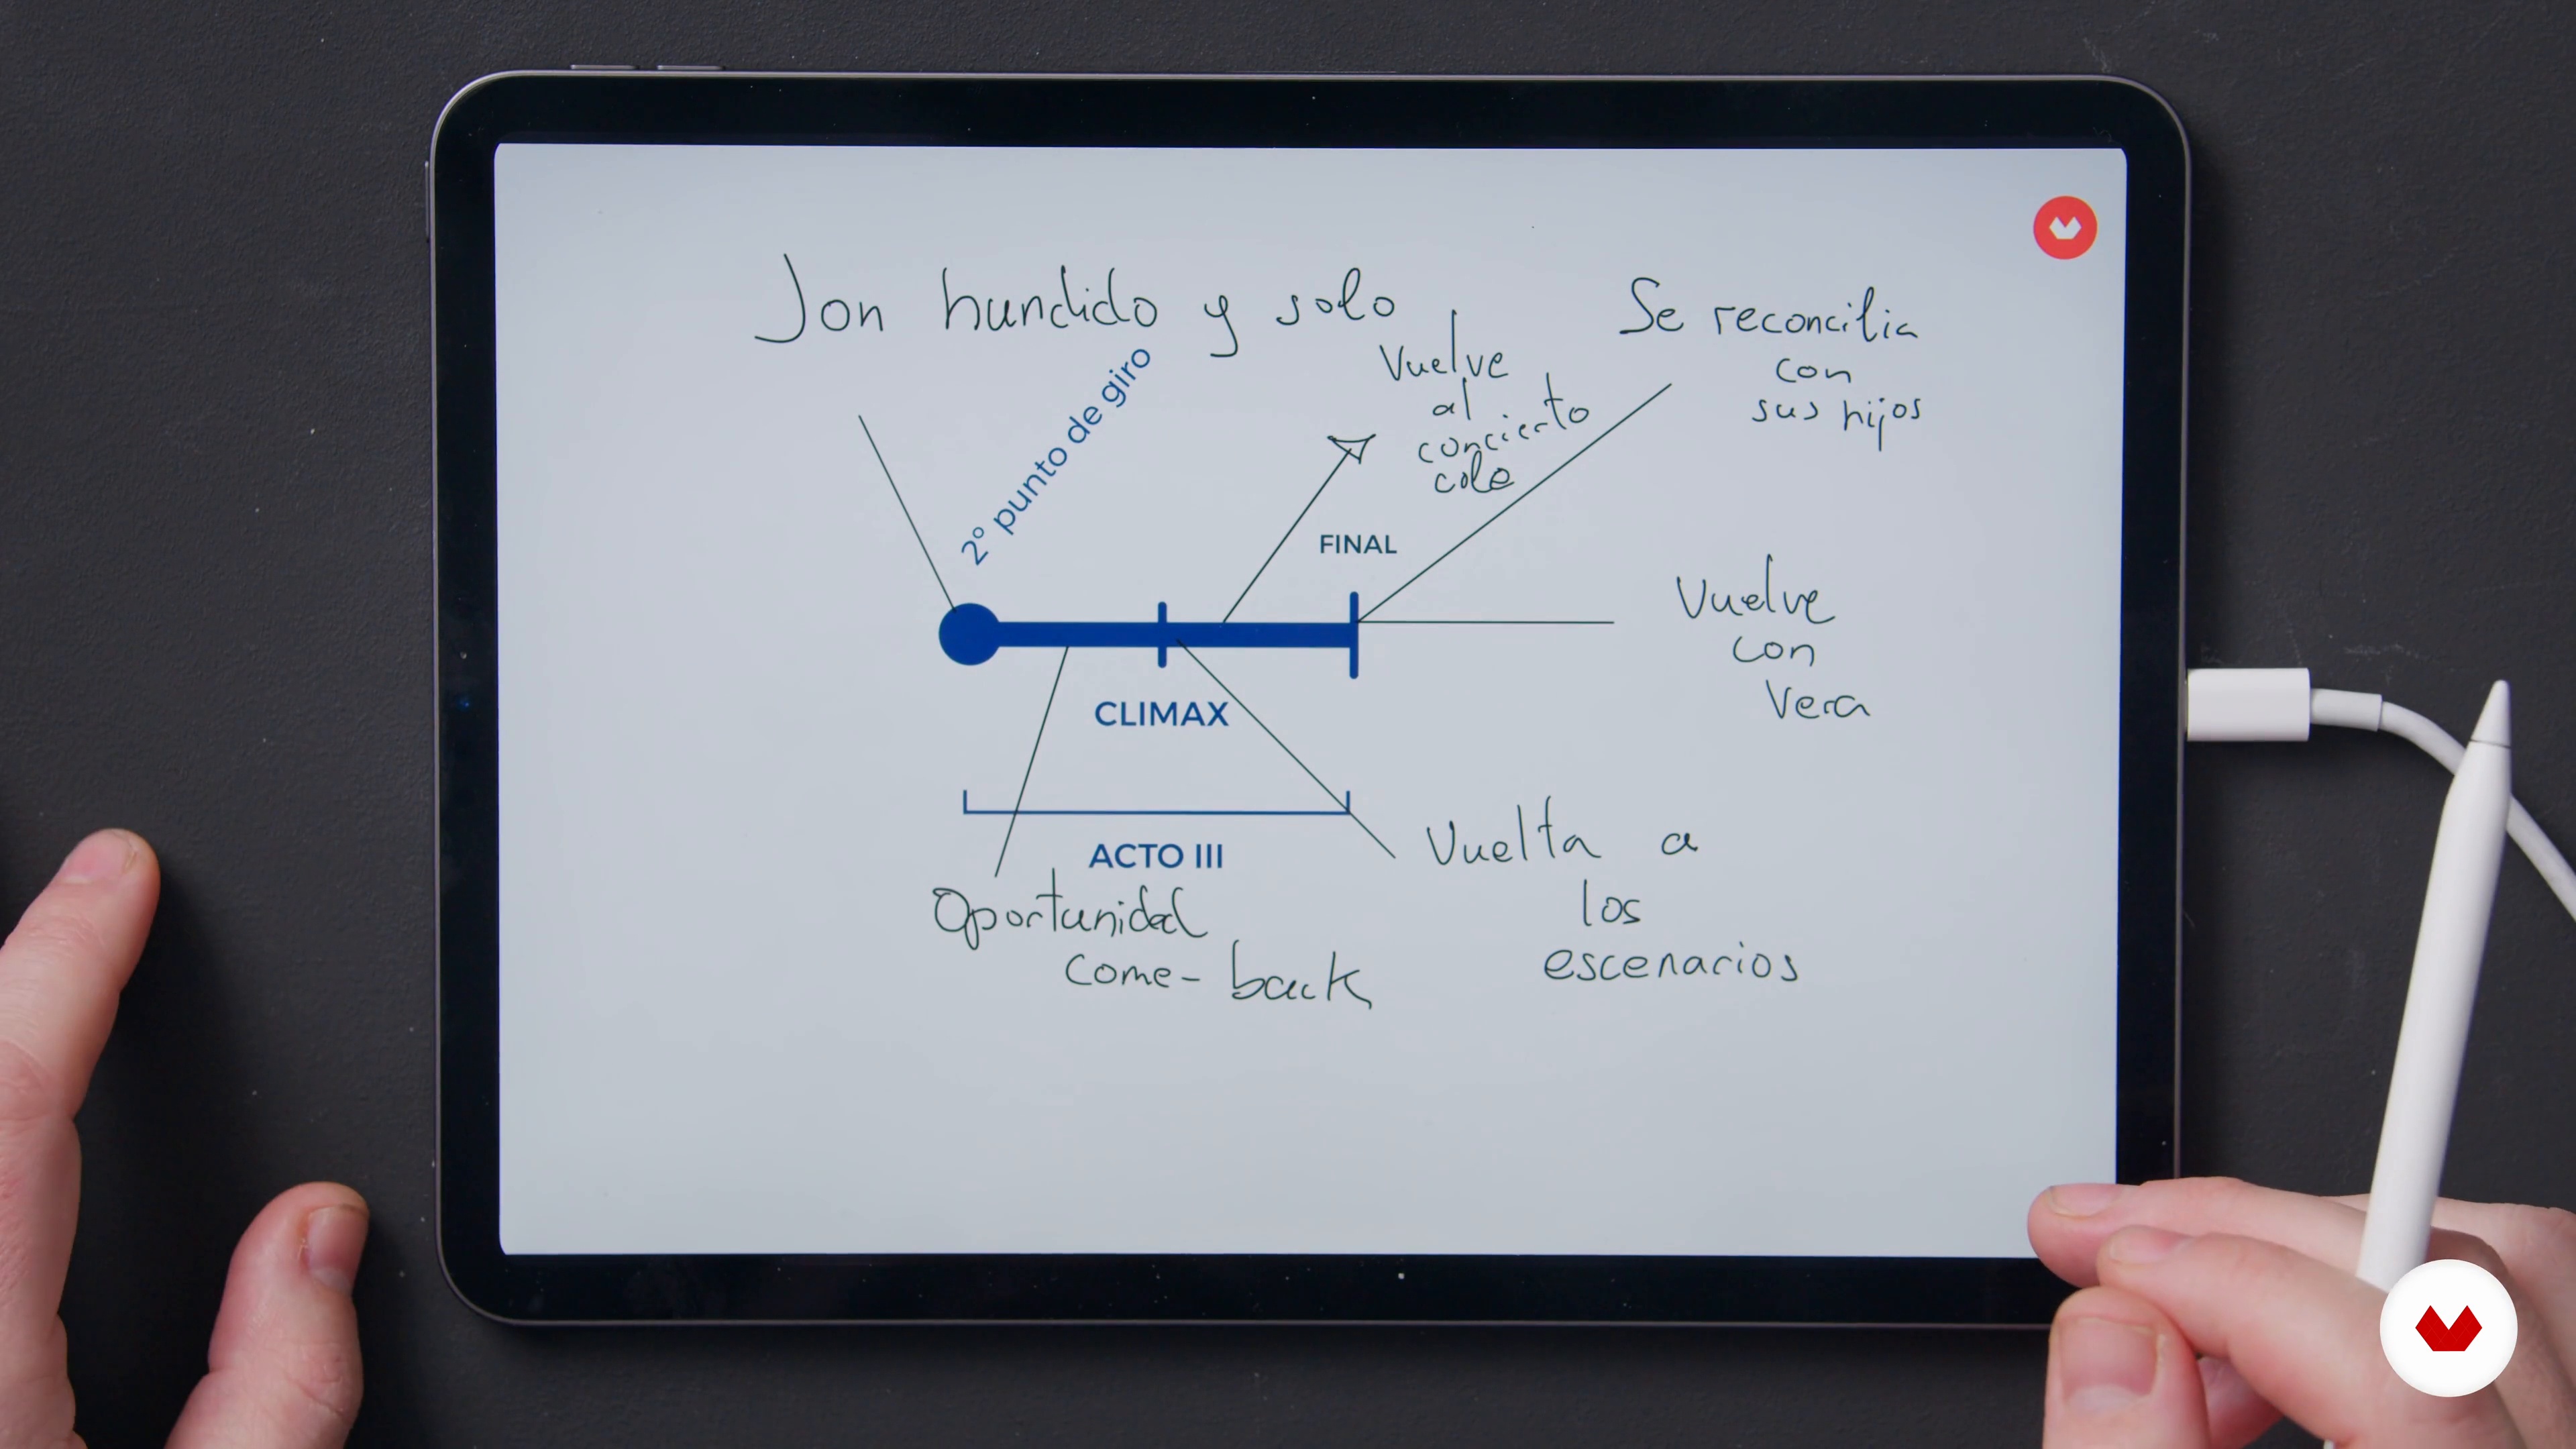 Jon hundido y solo
2º punto de giro
Vuelve
al
concierto
cole
Se reconcilia
con
sus hijos
FINAL
Vuelve
con
Vera
CLIMAX
ACTO III
Oportunidad
come-back
Vuelta a
los
escenarios